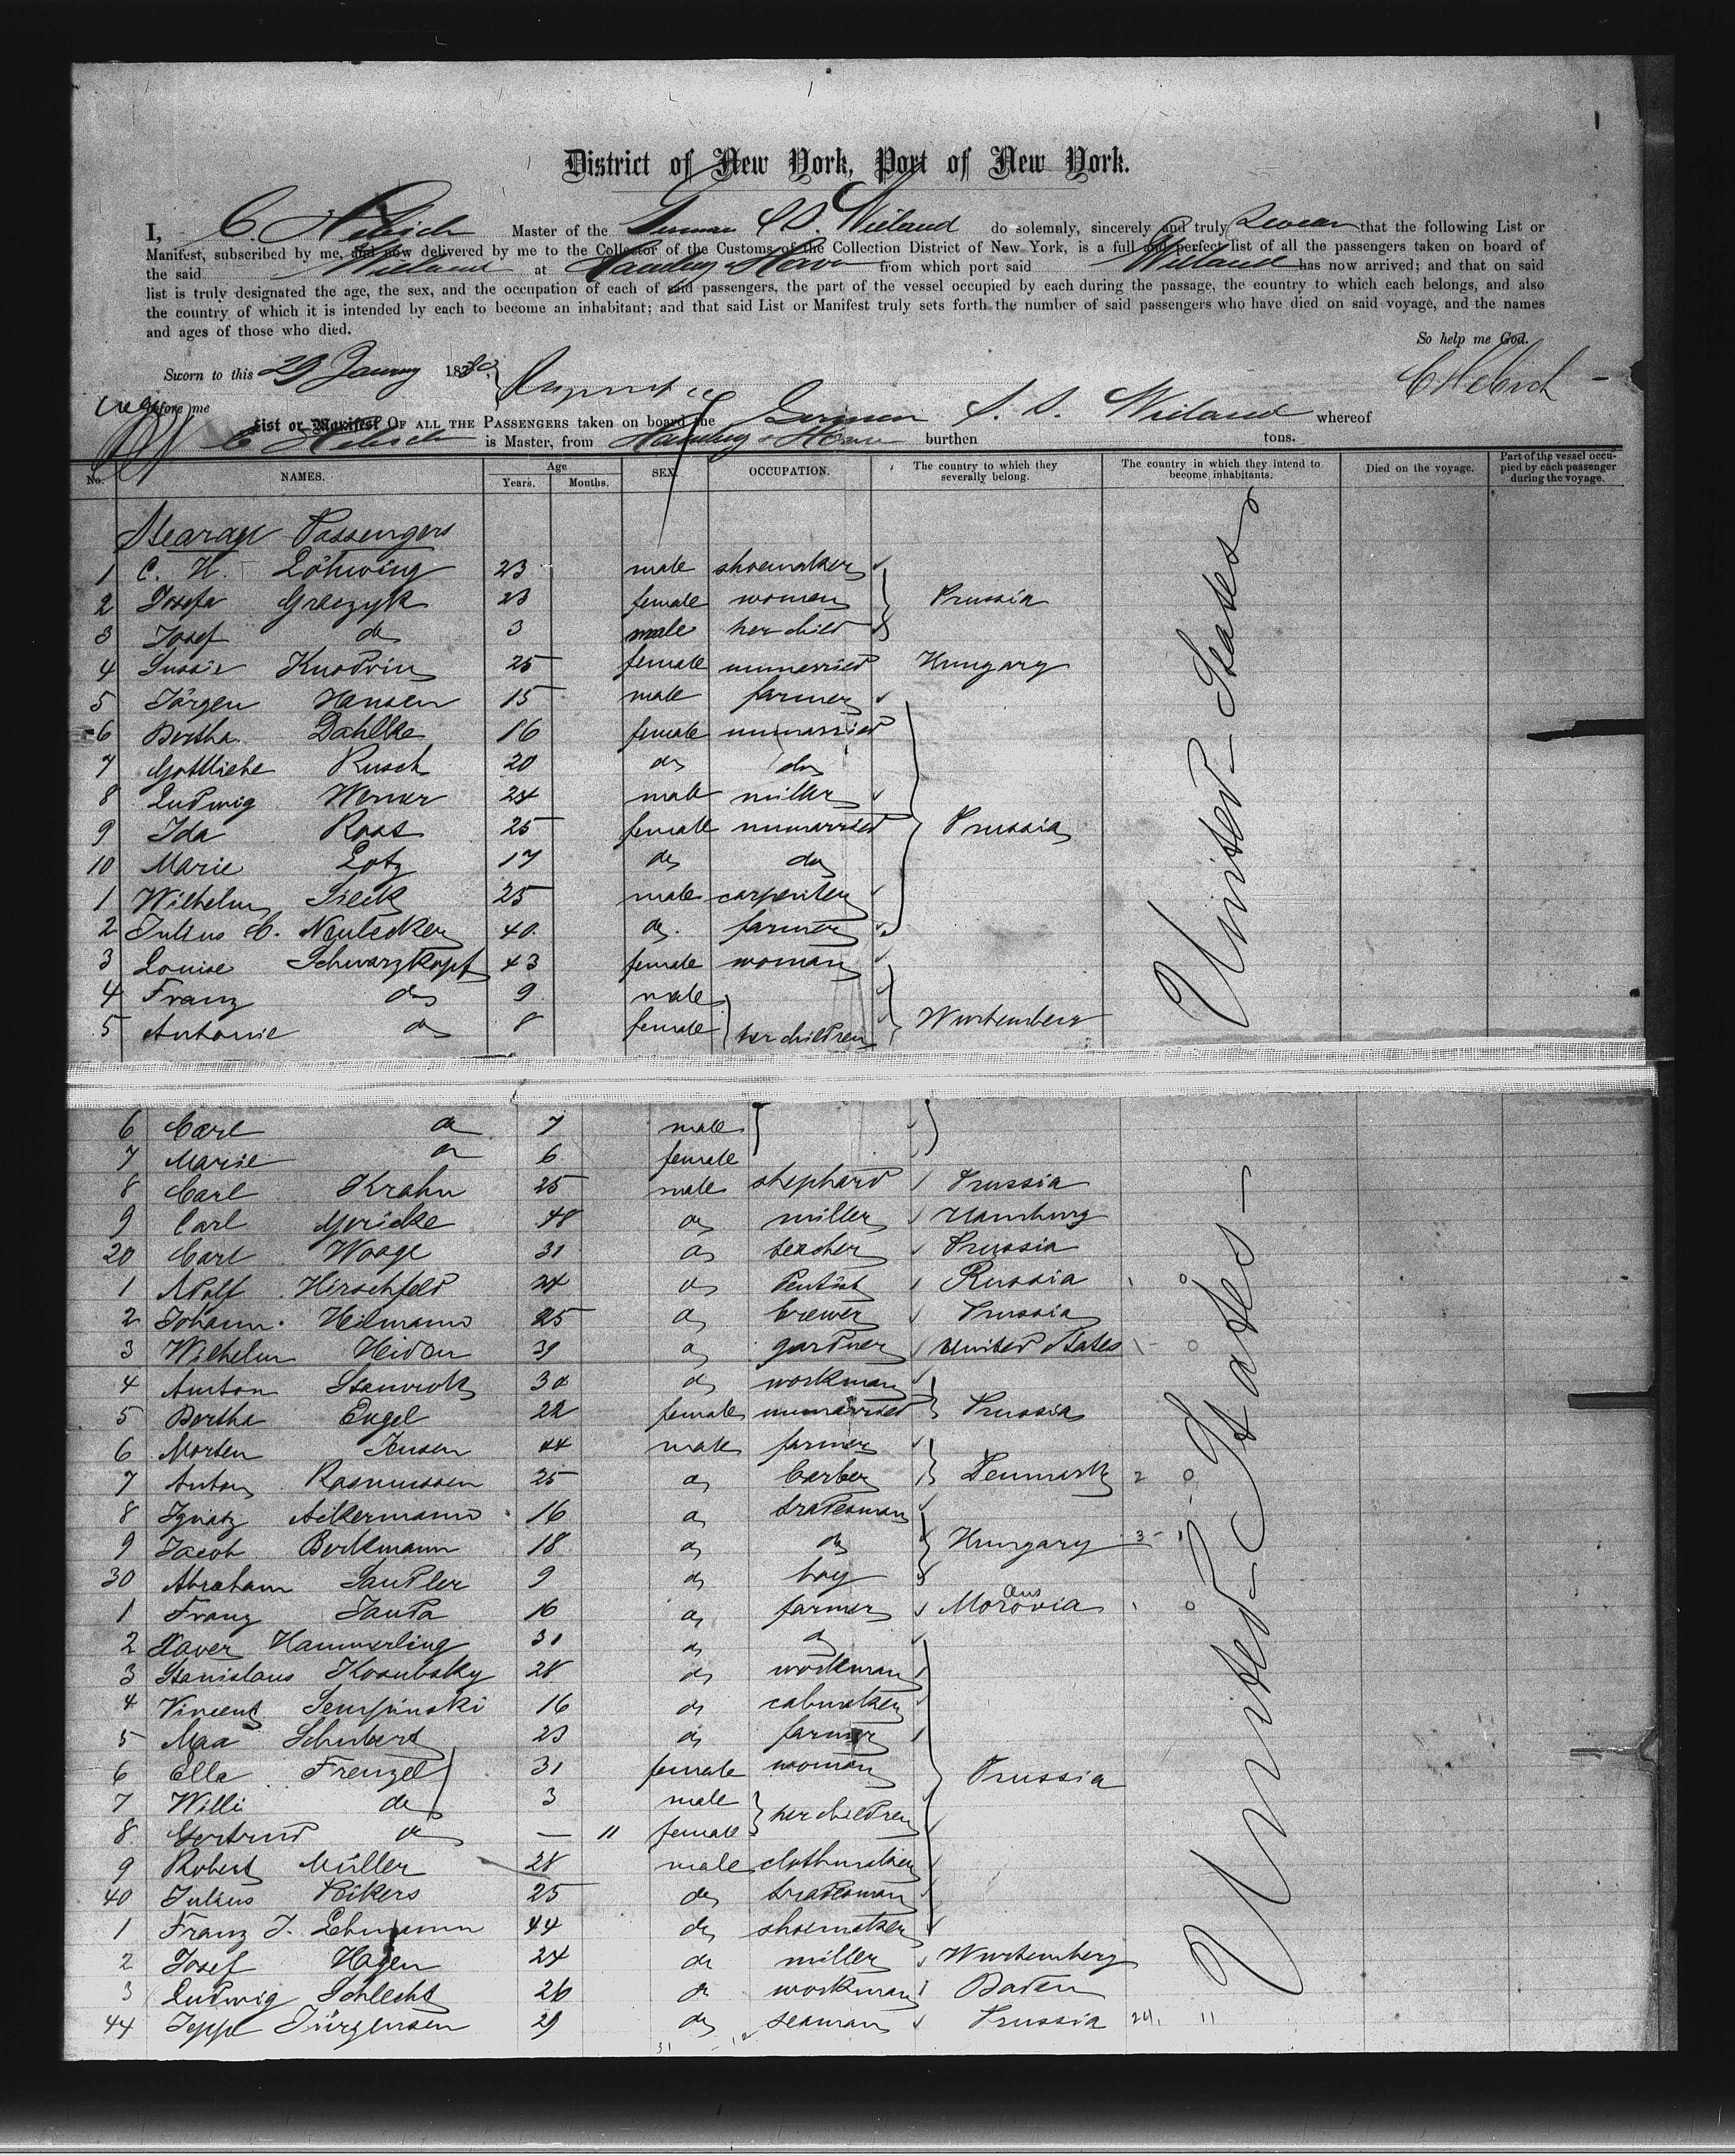 District of New York, Port of New York.
I, C. Hebich Master of the German S.S. Wieland do solemnly, sincerely and truly Swear that the following List or
Manifest, subscribed by me, and now delivered by me to the Collector of the Customs of the Collection District of New York, is a full and perfect list of all the passengers taken on board of
the said Wieland at Hamburg & Havre from which port said Wieland has now arrived; and that on said
list is truly designated the age, the sex, and the occupation of each of said passengers, the part of the vessel occupied by each during the passage, the country to which each belongs, and also
the country of which it is intended by each to become an inhabitant; and that said List or Manifest truly sets forth the number of said passengers who have died on said voyage, and the names
and ages of those who died.
So help me God.
Sworn to this 29 January 1880
C Hebich
before me
List or Manifest OF ALL THE PASSENGERS taken on board the German S. S. Wieland whereof
C Hebich is Master, from Hamburg & Havre burthen tons.
No. NAMES. Age Years. Months. SEX. OCCUPATION. The country to which they severally belong. The country in which they intend to become inhabitants. Died on the voyage. Part of the vessel occupied by each passenger during the voyage.
Stearage Passengers
1 C. H. Löhwing 23 male shoemaker
2 Josefa Graczyk 23 female woman Prussia
3 Josef do 3 male her child
4 25 female unmarried Hungary
5 Jörgen Hansen 15 male farmer
6 Bertha Dahlke 16 female unmarried
7 Gottliebe Rusch 20 do do
8 Ludwig Werner 24 male miller
9 Ida Rost 25 female unmarried Prussia
10 Marie Lotz 17 do do
1 Wilhelm Sieck 25 male carpenter
2 Julius C. 40 do farmer
3 Louise Schwarzkopf 43 female woman
4 Franz do 9 male
5 Antonie do 8 female her children Wurtemberg
United States
6 Carl do 7 male
7 Marie do 6 female
8 Carl Krahn 25 male shephard Prussia
9 Carl Gericke 48 do miller Hamburg
20 Carl Woage 31 do teacher Prussia
1 Adolf Hirschfeld 24 do Dentist Russia 1 0
2 Johann Heilmann 25 do brewer Prussia
3 Wilhelm 39 do gardner United States 1 - 0
4 Anton 30 do workman
5 Bertha Engel 22 female unmarried Prussia
6 Morten Jensen 44 male farmer
7 Anton Rasmussen 25 do barber Denmark 2 0
8 Ignatz Ackermann 16 do tradesman
9 Jacob Berkmann 18 do do Hungary 3
30 Abraham Sandler 9 do boy
1 Franz Janda 16 do farmer Moravia Aus 1 0
2 Xaver Hammerling 31 do do
3 Stanislaus Kosubsky 28 do workman
4 Vincent 16 do cabmaker
5 Max Schubert 23 do farmer
6 Ella Frenzel 31 female woman Prussia
7 Willi do 3 male her children
8 Gertrud do — 11 female
9 Robert Müller 28 male clothmaker
40 Julius 25 do tradesman
1 Franz J. Lehmann 44 do shoemaker
2 Josef Hagen 24 do miller Wurtemberg
3 Ludwig Schlecht 26 do workman Baden
44 Jeppe Jürgensen 29 do seaman Prussia 24 11
United States